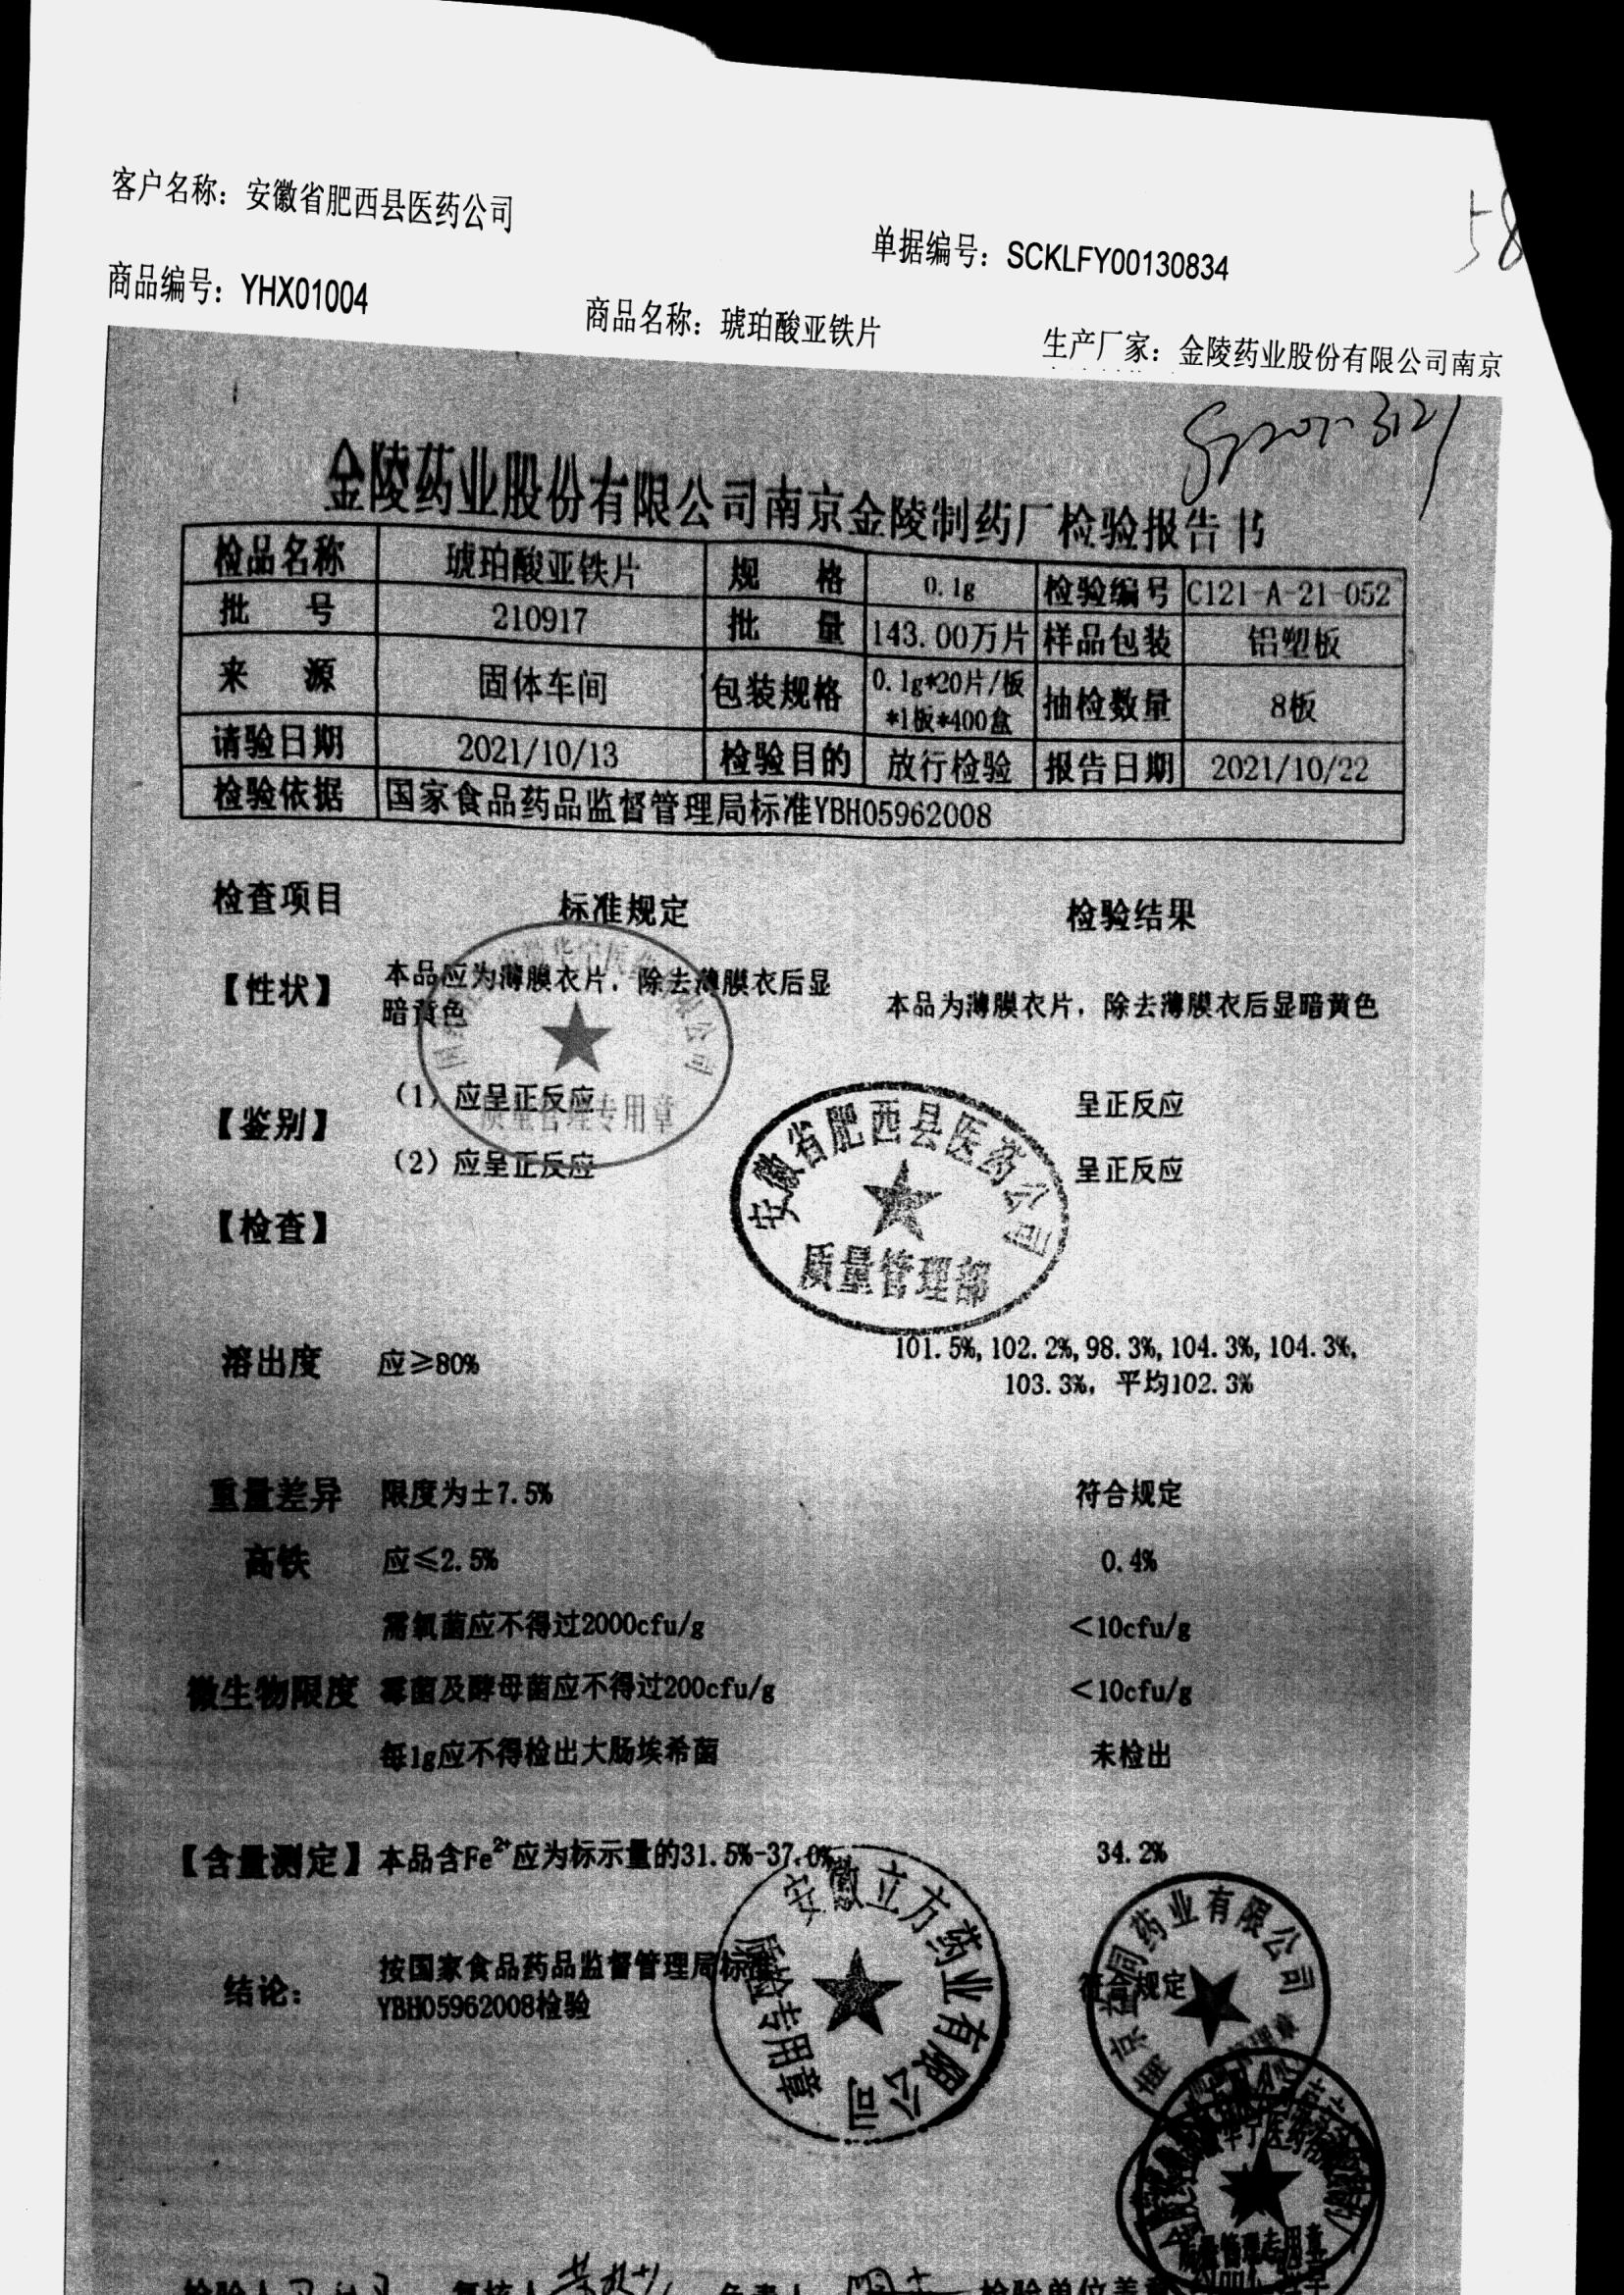 客户名称：安徽省肥西县医药公司
单据编号：SCKLFY00130834
58
商品编号：YHX01004 商品名称：琥珀酸亚铁片 生产厂家：金陵药业股份有限公司南京
金陵药业股份有限公司南京金陵制药厂检验报告书
检品名称 琥珀酸亚铁片 规 格 0.1g 检验编号 C121-A-21-052
批 号 210917 批 量 143.00万片 样品包装 铝塑板
来 源 固体车间 包装规格 0.1g*20片/板*1板*400盒 抽检数量 8板
请验日期 2021/10/13 检验目的 放行检验 报告日期 2021/10/22
检验依据 国家食品药品监督管理局标准YBH05962008
检查项目 标准规定 检验结果
【性状】 本品应为薄膜衣片，除去薄膜衣后显
暗黄色 本品为薄膜衣片，除去薄膜衣后显暗黄色
【鉴别】 （1）应呈正反应 呈正反应
质量管理专用章
（2）应呈正反应 呈正反应
安徽省肥西县医药公司
质量管理部
【检查】
溶出度 应≥80% 101.5%, 102.2%, 98.3%, 104.3%, 104.3%,
103.3%，平均102.3%
重量差异 限度为±7.5% 符合规定
高铁 应≤2.5% 0.4%
需氧菌应不得过2000cfu/g <10cfu/g
微生物限度 霉菌及酵母菌应不得过200cfu/g <10cfu/g
每1g应不得检出大肠埃希菌 未检出
【含量测定】 本品含Fe²⁺应为标示量的31.5%-37.0% 34.2%
结论： 按国家食品药品监督管理局标准
YBH05962008检验 符合规定
安徽立方药业有限公司
质检专用章
药业有限公司
质量管理专用章
检验人 复核人 负责人 检验单位盖章